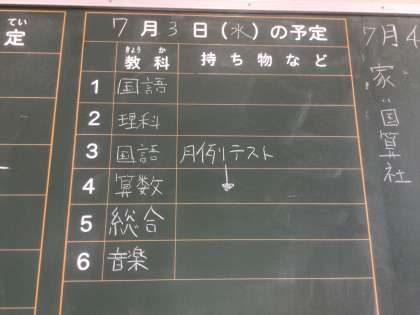 てい
定
7月3日(水)の予定
きょう か
教科 持ち物など
1 国語
2 理科
3 国語 月例テスト
4 算数
5 総合
6 音楽
7月4
家
国
算
社